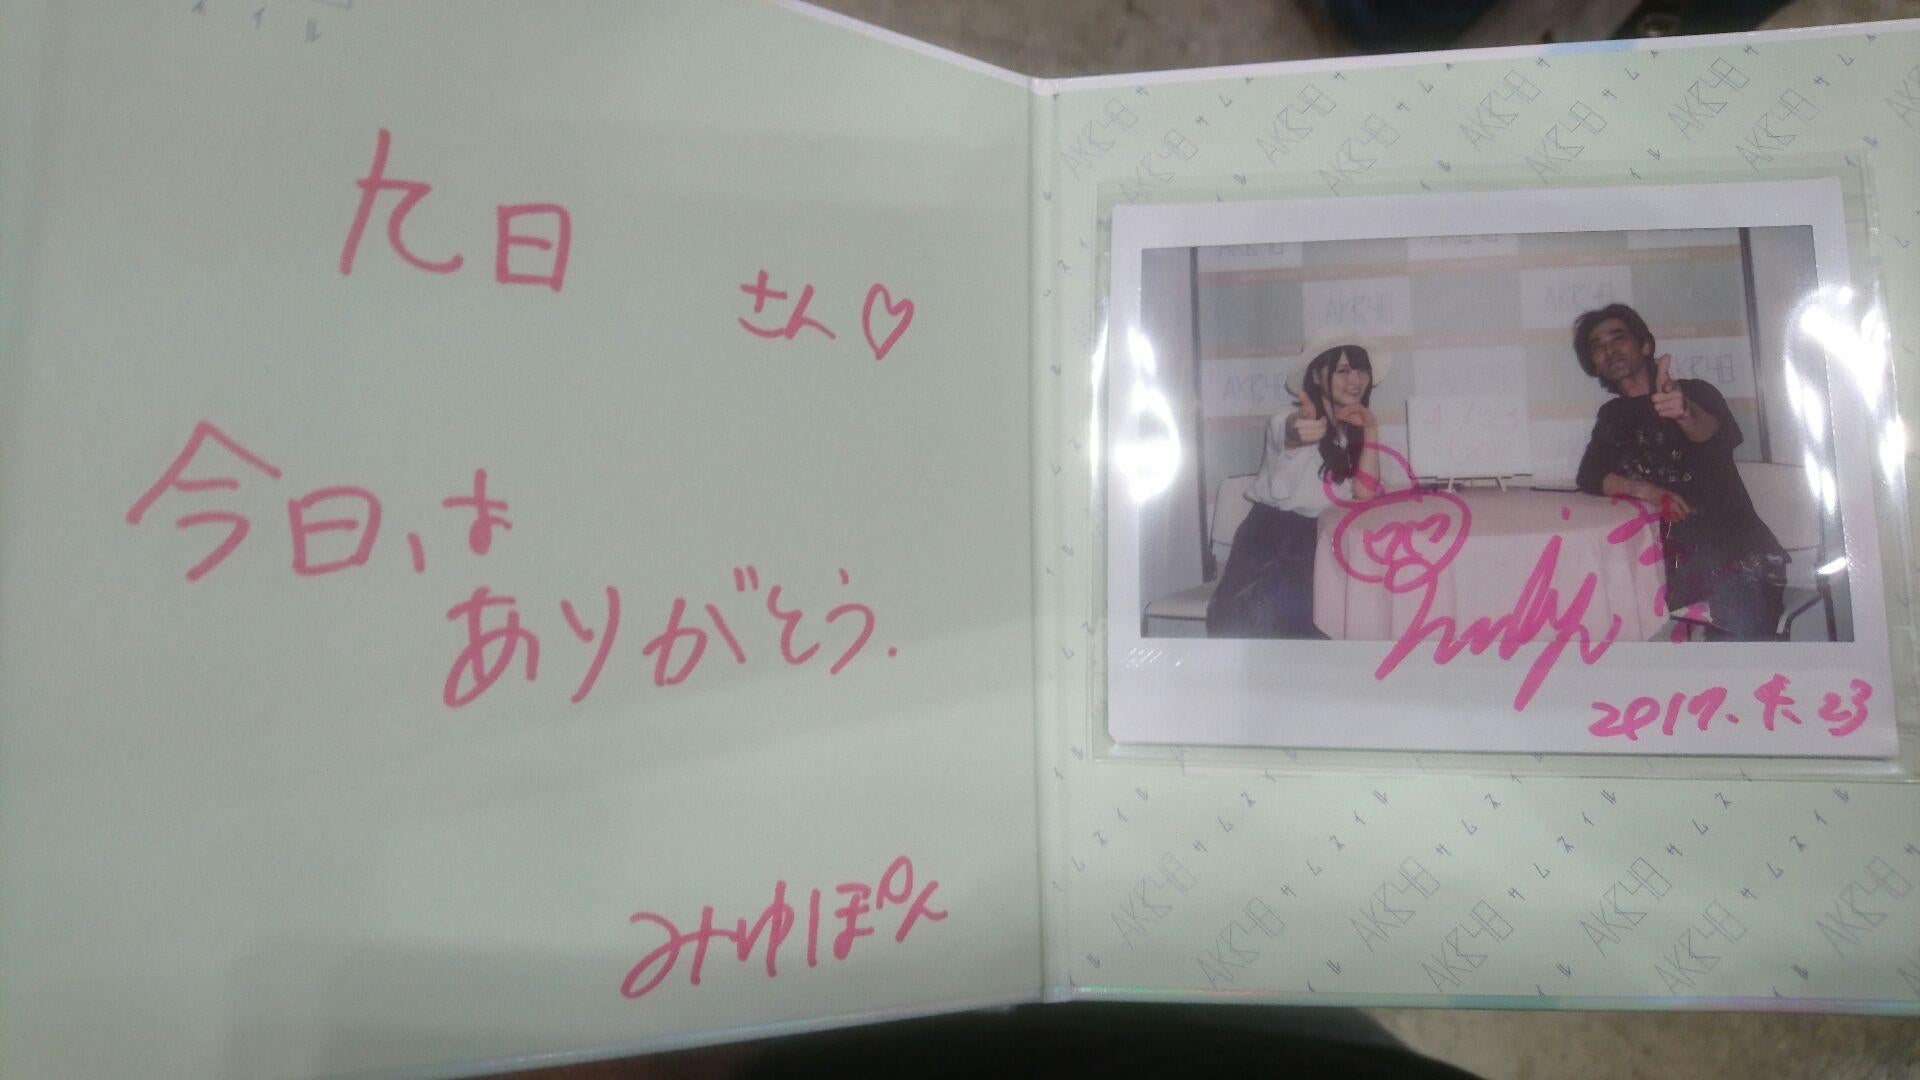 九日
さん♡
今日は
ありがとう.
みゆぽん
AKB48
サムズイル
4/23
2017.4.23